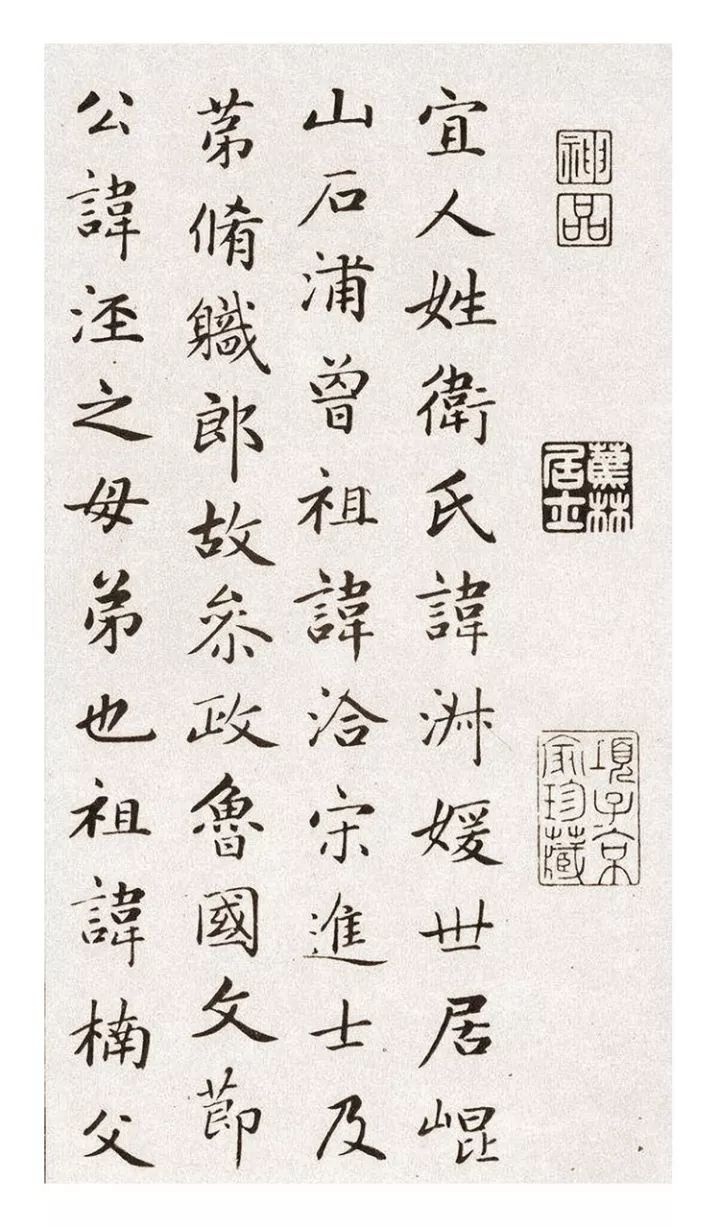 神品
蕉林居士
項子京家珍藏
宜人姓衛氏諱淑媛世居崐
山石浦曾祖諱洽宋進士及
第脩職郎故叅政魯國文節
公諱涇之母弟也祖諱楠父